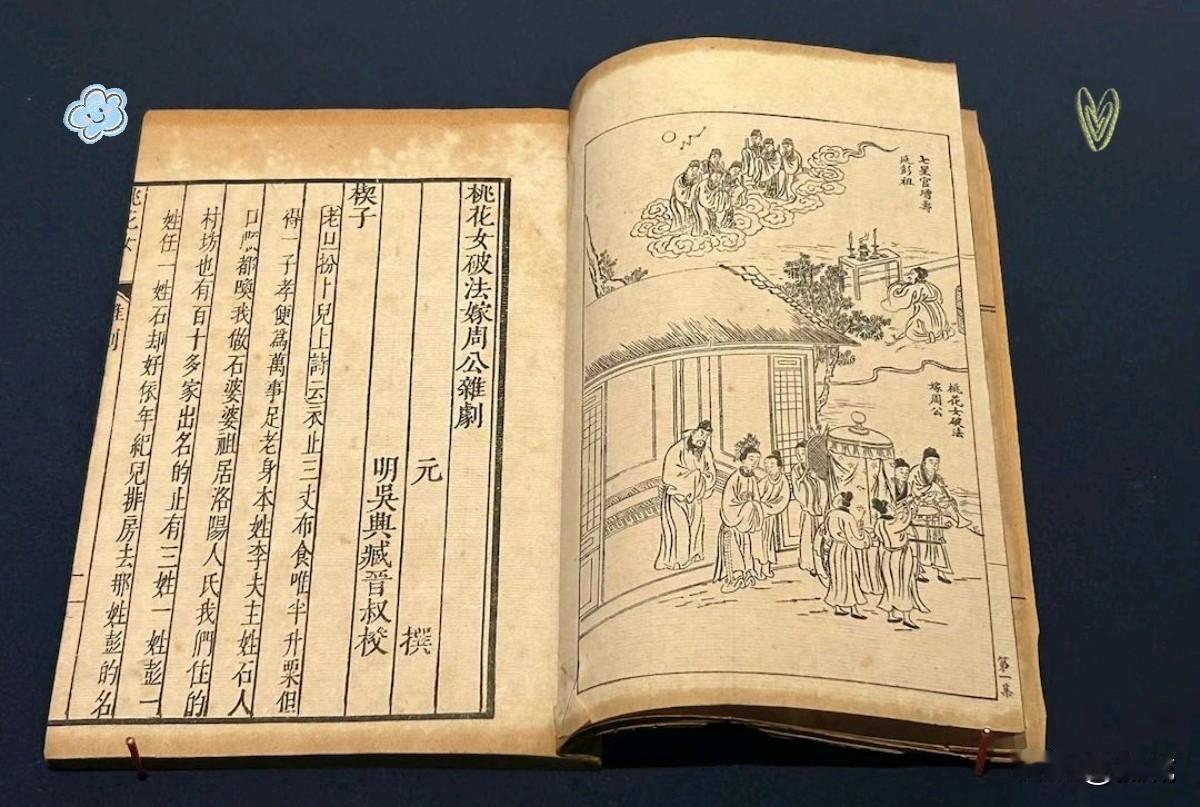 七星官增壽
延彭祖
桃花女破法
嫁周公
第一集
桃花女破法嫁周公雜劇
元 撰
明吳興臧晉叔校
楔子
老旦扮卜兒上詩云衣止三丈布食唯半升粟但
得一子孝便爲萬事足老身本姓李夫主姓石人
口順都喚我做石婆婆祖居洛陽人氏我們住的
村坊也有百十多家出名的止有三姓一姓彭一
姓任一姓石却好依年紀兒排房去那姓彭的名
桃花女 雜劇